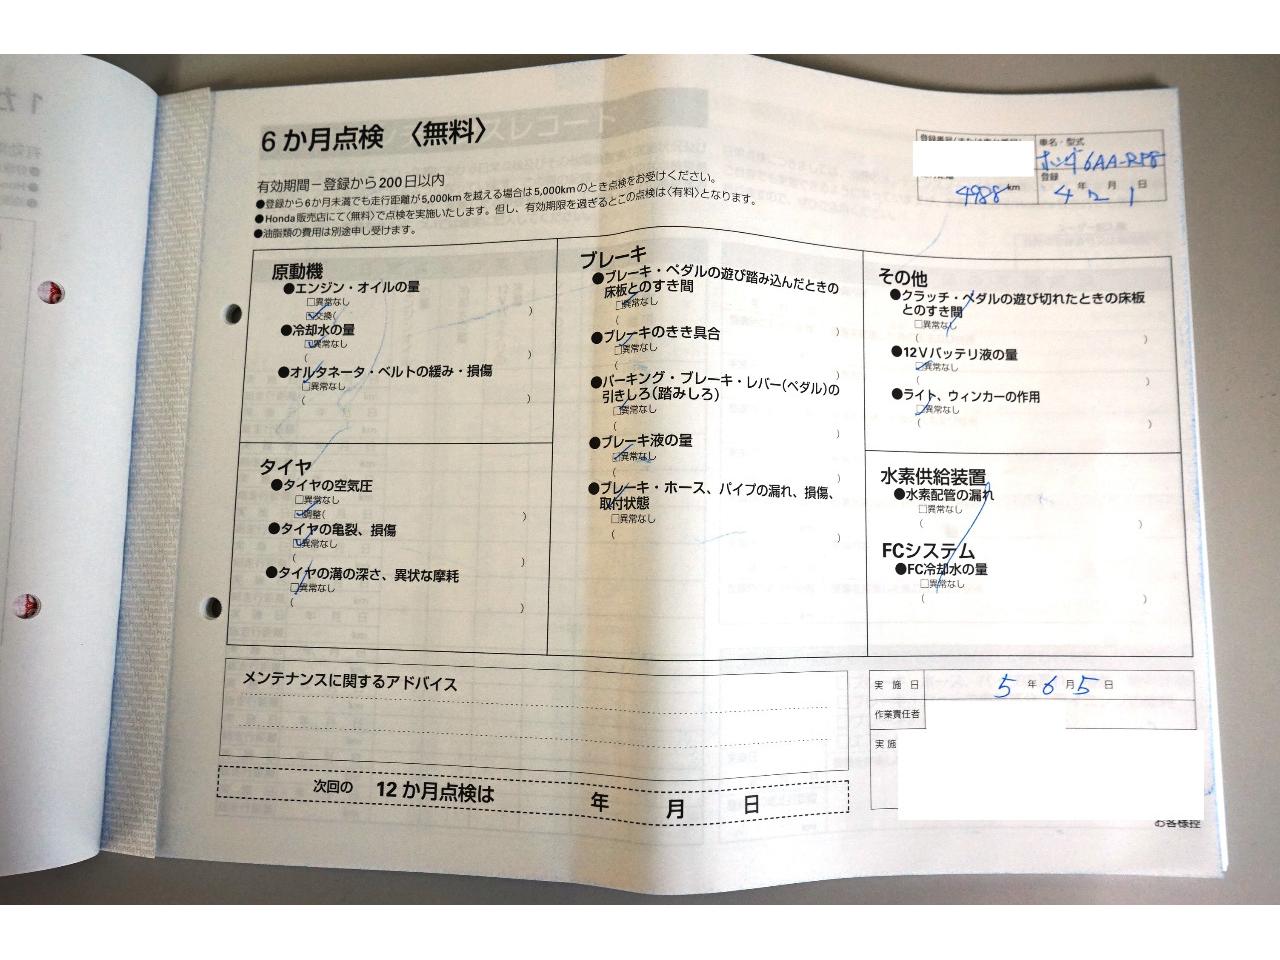 6か月点検 〈無料〉
有効期間－登録から200日以内
●登録から6か月未満でも走行距離が5,000kmを越える場合は5,000kmのとき点検をお受けください。
●Honda販売店にて〈無料〉で点検を実施いたします。但し、有効期限を過ぎるとこの点検は〈有料〉となります。
●油脂類の費用は別途申し受けます。
車名・型式
ホンダ 6AA-RP8
4988 km
登録
4年 2月 1
原動機
●エンジン・オイルの量
□異常なし
☑交換( )
●冷却水の量
☑異常なし
( )
●オルタネータ・ベルトの緩み・損傷
☑異常なし
( )
タイヤ
●タイヤの空気圧
□異常なし
☑調整( )
●タイヤの亀裂、損傷
☑異常なし
( )
●タイヤの溝の深さ、異状な摩耗
☑異常なし
( )
ブレーキ
●ブレーキ・ペダルの遊び踏み込んだときの
床板とのすき間
☑異常なし
( )
●ブレーキのきき具合
☑異常なし
( )
●パーキング・ブレーキ・レバー(ペダル)の
引きしろ(踏みしろ)
☑異常なし
( )
●ブレーキ液の量
☑異常なし
( )
●ブレーキ・ホース、パイプの漏れ、損傷、
取付状態
□異常なし
( )
その他
●クラッチ・ペダルの遊び切れたときの床板
とのすき間
□異常なし
( )
●12Vバッテリ液の量
☑異常なし
( )
●ライト、ウィンカーの作用
☑異常なし
( )
水素供給装置
●水素配管の漏れ
□異常なし
( )
FCシステム
●FC冷却水の量
□異常なし
( )
メンテナンスに関するアドバイス
次回の 12か月点検は 年 月 日
実施日 5年6月5日
作業責任者
実施
お客様控